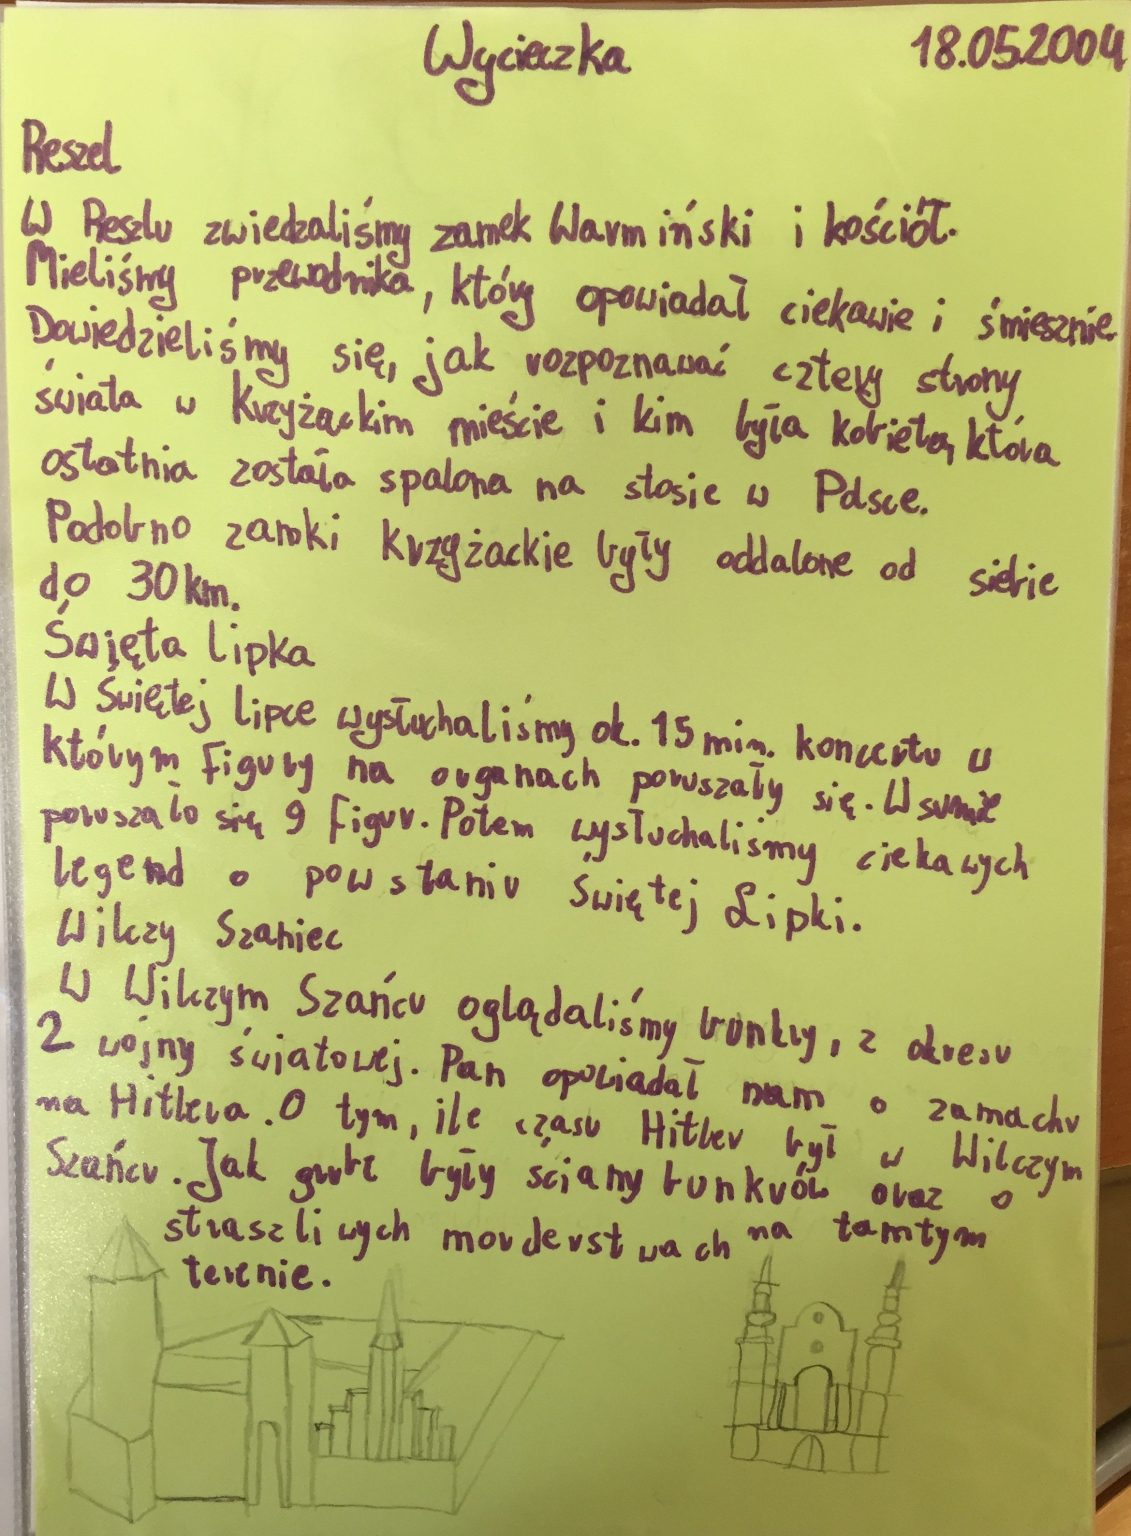 Wycieczka 18.05.2004
Reszel
W Reszlu zwiedzaliśmy zamek Warmiński i kościół.
Mieliśmy przewodnika, który opowiadał ciekawie i śmiesznie.
Dowiedzieliśmy się, jak rozpoznawać cztery strony
świata w Krzyżackim mieście i kim była kobieta, która
ostatnia została spalona na stosie w Polsce.
Podobno zamki krzyżackie były oddalone od siebie
do 30 km.
Święta lipka
W Świętej lipce wysłuchaliśmy ok. 15 min. koncertu w
którym figury na organach poruszały się. W sumie
poruszało się 9 figur. Potem wysłuchaliśmy ciekawych
legend o powstaniu Świętej Lipki.
Wilczy Szaniec
W Wilczym Szańcu oglądaliśmy bunkry, z okresu
2 wojny światowej. Pan opowiadał nam o zamachu
na Hitlera. O tym, ile czasu Hitler był w Wilczym
Szańcu. Jak grube były ściany bunkrów oraz o
straszliwych morderstwach na tamtym
terenie.